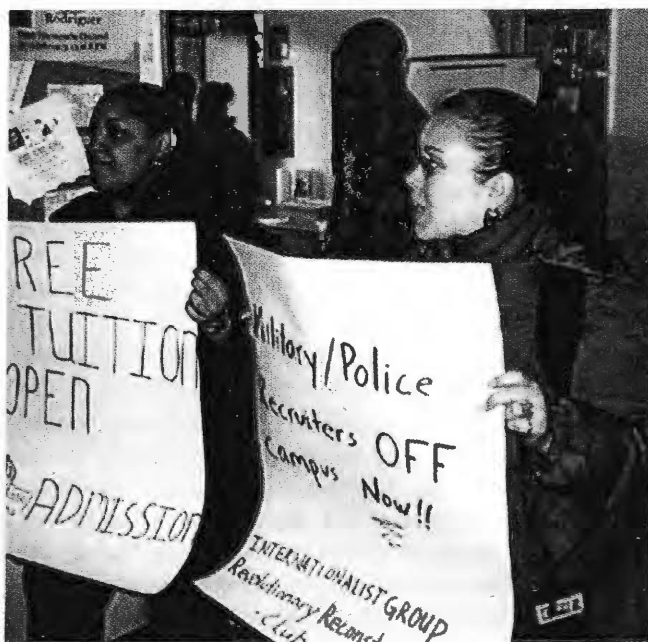 Rodriguez
REE
TUITION
OPEN
ADMISSION
Military/Police
Recruiters OFF
Campus Now!!
INTERNATIONALIST GROUP
Revolutionary Reconst
Club